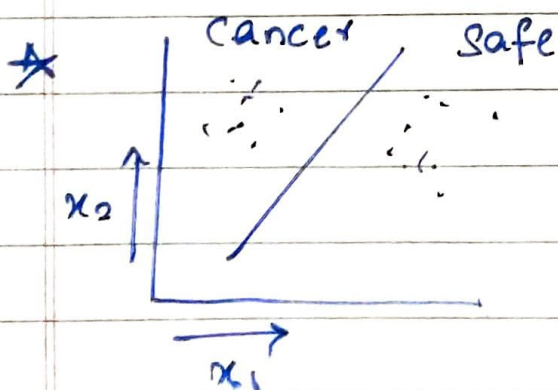 Cancer Safe
x₂
x₁